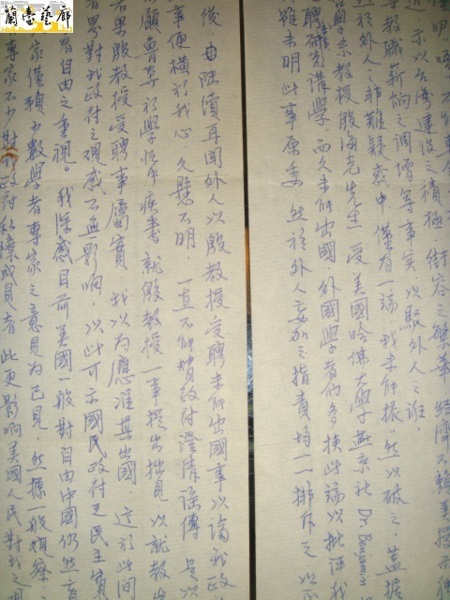 蘭臺藝廊
示以台灣建設之積極 街容之繁華 經濟
教職薪餉之調增等事實 以駁外人之誰
於外人之非難疑惑中 僅有一端 我未能振然以破之 蓋據
學系教授殷海光先生 受美國哈佛大學燕京社 Dr. Benjamin
聘研究講學 而久未能出國 外國學者仍多挾此端以批評我
雖未明此事原委 然於外人妄加之指責 均一一排斥之 以正
後 由陸續再因外人以殷教授受聘未能出國事以論我政
事便橫於我心 久懸不明 一直不能替政府澄清謠傳 是以
願冒
就殷教授一事提出拙見 以就教
若果殷教授受聘事屬實 我以為應准其出國 這於此間
者界對我政府之觀感不無影響 以此可示國民政府之民主實
者自由之重視。我深感目前美國一般對自由中國仍然有
家僅賴少數學者專家之意見為己見 然據一般觀察
專家不少對我政府私懷成見者 此更影响美國人民對我之觀